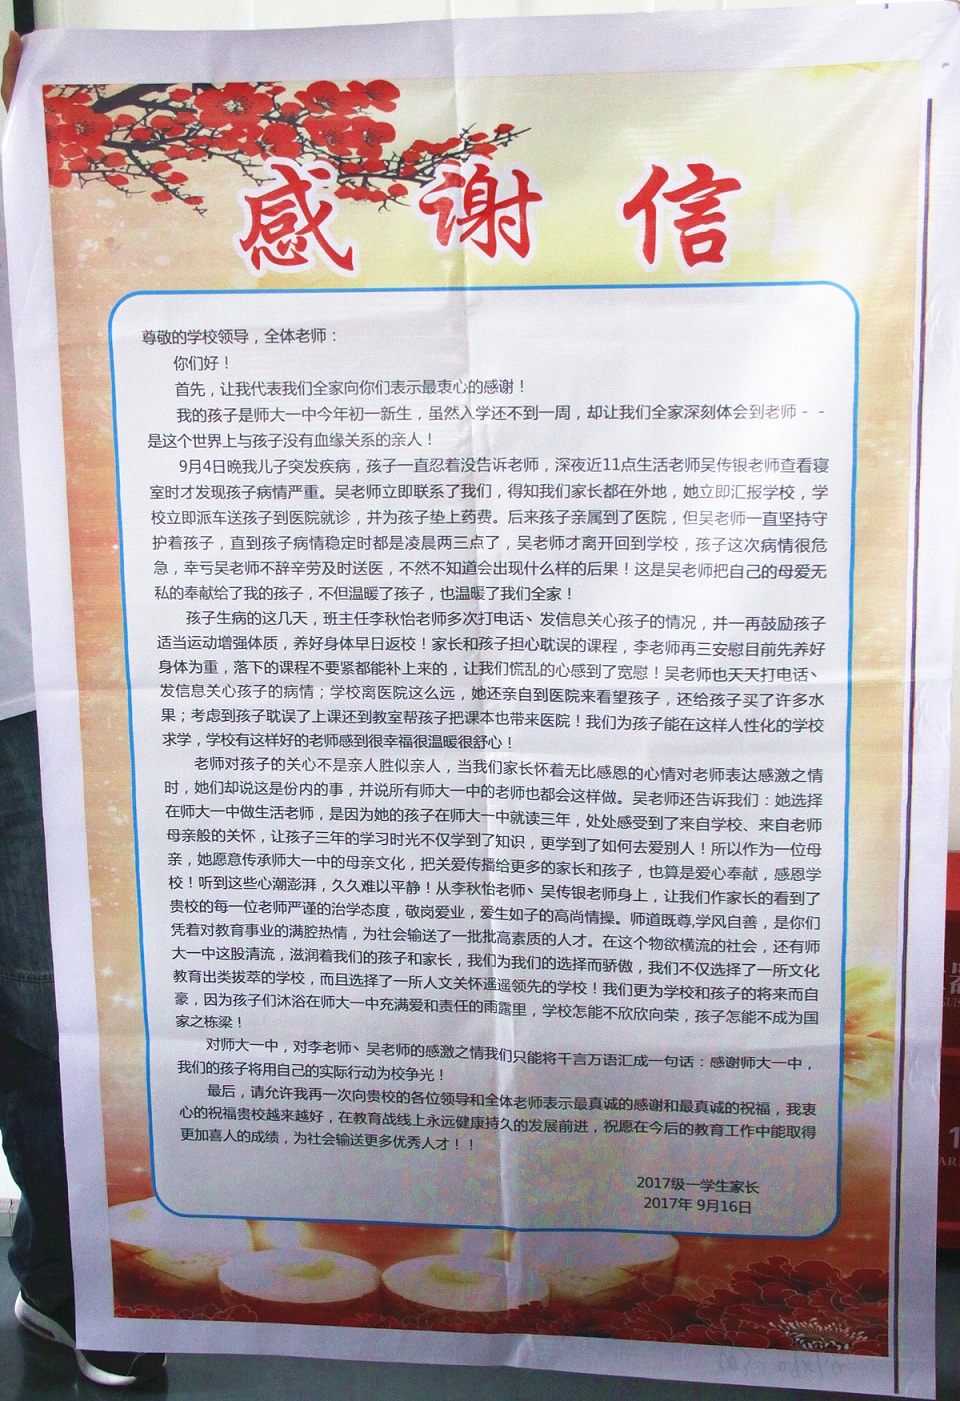 感谢信
尊敬的学校领导，全体老师：
你们好！
首先，让我代表我们全家向你们表示最衷心的感谢！
我的孩子是师大一中今年初一新生，虽然入学还不到一周，却让我们全家深刻体会到老师--
是这个世界上与孩子没有血缘关系的亲人！
9月4日晚我儿子突发疾病，孩子一直忍着没告诉老师，深夜近11点生活老师吴传银老师查看寝
室时才发现孩子病情严重。吴老师立即联系了我们，得知我们家长都在外地，她立即汇报学校，学
校立即派车送孩子到医院就诊，并为孩子垫上药费。后来孩子亲属到了医院，但吴老师一直坚持守
护着孩子，直到孩子病情稳定时都是凌晨两三点了，吴老师才离开回到学校，孩子这次病情很危
急，幸亏吴老师不辞辛劳及时送医，不然不知道会出现什么样的后果！这是吴老师把自己的母爱无
私的奉献给了我的孩子，不但温暖了孩子，也温暖了我们全家！
孩子生病的这几天，班主任李秋怡老师多次打电话、发信息关心孩子的情况，并一再鼓励孩子
适当运动增强体质，养好身体早日返校！家长和孩子担心耽误的课程，李老师再三安慰目前先养好
身体为重，落下的课程不要紧都能补上来的，让我们慌乱的心感到了宽慰！吴老师也天天打电话、
发信息关心孩子的病情；学校离医院这么远，她还亲自到医院来看望孩子，还给孩子买了许多水
果；考虑到孩子耽误了上课还到教室帮孩子把课本也带来医院！我们为孩子能在这样人性化的学校
求学，学校有这样好的老师感到很幸福很温暖很舒心！
老师对孩子的关心不是亲人胜似亲人，当我们家长怀着无比感恩的心情对老师表达感激之情
时，她们却说这是份内的事，并说所有师大一中的老师也都会这样做。吴老师还告诉我们：她选择
在师大一中做生活老师，是因为她的孩子在师大一中就读三年，处处感受到了来自学校、来自老师
母亲般的关怀，让孩子三年的学习时光不仅学到了知识，更学到了如何去爱别人！所以作为一位母
亲，她愿意传承师大一中的母亲文化，把关爱传播给更多的家长和孩子，也算是爱心奉献，感恩学
校！听到这些心潮澎湃，久久难以平静！从李秋怡老师、吴传银老师身上，让我们作家长的看到了
贵校的每一位老师严谨的治学态度，敬岗爱业，爱生如子的高尚情操。师道既尊,学风自善，是你们
凭着对教育事业的满腔热情，为社会输送了一批批高素质的人才。在这个物欲横流的社会，还有师
大一中这股清流，滋润着我们的孩子和家长，我们为我们的选择而骄傲，我们不仅选择了一所文化
教育出类拔萃的学校，而且选择了一所人文关怀遥遥领先的学校！我们更为学校和孩子的将来而自
豪，因为孩子们沐浴在师大一中充满爱和责任的雨露里，学校怎能不欣欣向荣，孩子怎能不成为国
家之栋梁！
对师大一中，对李老师、吴老师的感激之情我们只能将千言万语汇成一句话：感谢师大一中，
我们的孩子将用自己的实际行动为校争光！
最后，请允许我再一次向贵校的各位领导和全体老师表示最真诚的感谢和最真诚的祝福，我衷
心的祝福贵校越来越好，在教育战线上永远健康持久的发展前进，祝愿在今后的教育工作中能取得
更加喜人的成绩，为社会输送更多优秀人才！！
2017级一学生家长
2017年 9月16日